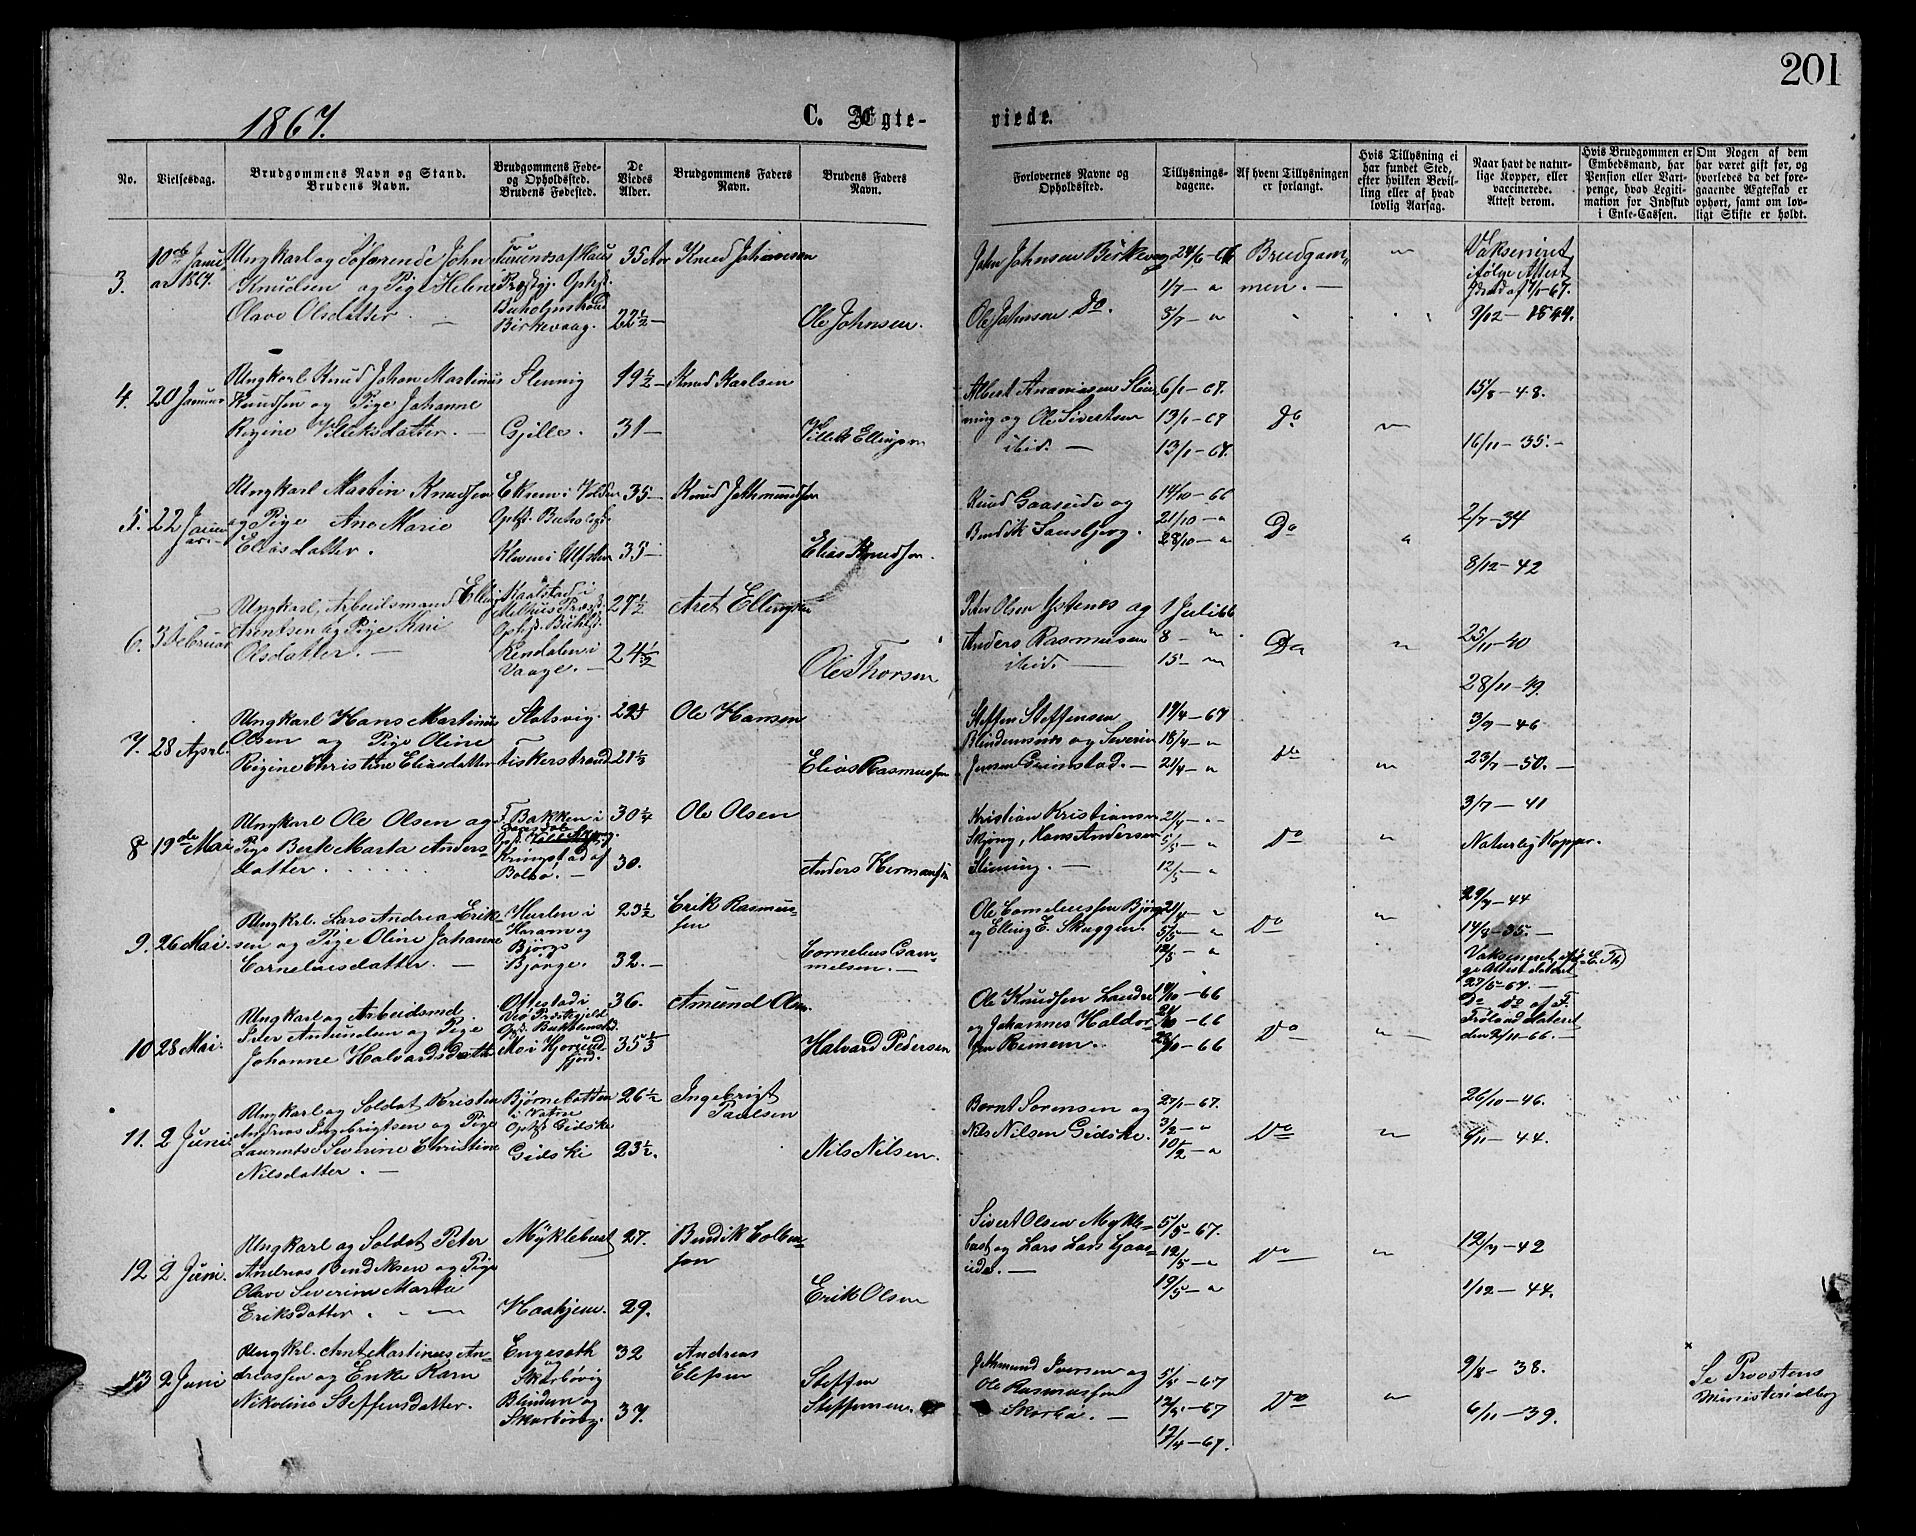 201
1867.
C. Ægte-
viede.
No.
Vielsesdag.
Brudgommens Navn og Stand.
Brudens Navn.
Brudgommens Føde-
og Opholdssted.
Brudens Fødested.
De
Viedes
Alder.
Brudgommens Faders
Navn.
Brudens Faders
Navn.
Forlovernes Navne og
Opholdssted.
Tillysnings-
dagene.
Af hvem Tillysningen
er forlangt.
Hvis Tillysning ei
har fundet Sted,
efter hvilken Bevil-
ling eller af hvad
lovlig Aarsag.
Naar havt de natur-
lige Kopper, eller
vaccinerede.
Attest derom.
Hvis Brudgommen er
Embedsmand, har
Pension eller Vart-
penge, hvad Legiti-
mation for Indskud
i Enke-Cassen.
Om Nogen af dem
har været gift før, og
hvorledes da det fore-
gaaende Ægteskab er
ophørt, samt om lov-
ligt Skifte er holdt.
3.
10de Janu
ar 1867.
Ungkarl og Søfarende John
Knudsen og Pige Helene
Olave Olsdatter.
Præstgj. Opholdst.
Buholmstrand
Birkevaag.
35 Aar
22½ —
Knud Johansen
Ole Johnsen.
John Johnsen Birkevaag
Ole Johnsen Do.
24/6 - 66
1/7 — "
5/7 — "
Brudgom-
men. —
"
Vaksineret
ifølge Attest
9/12 — 1844.
4.
20 Januar
Ungkarl Knud Johan Martinus
Knudsen og Pige Johanne
Regine Villiksdatter. —
Slennig
Gjille.
19½ —
31 —
Knud Karlsen
Villik Ellingsen
Albert Ananiasen Slen
ning og Ole Sivertsen
ibid. —
6/1 - 67.
13/1 - 67
13/1 - 67.
Do
"
15/8 - 48.
16/11 - 35. -
5.
22 Januar
Ungkarl Martin Knudsen
og Pige Ane Marie
Eliasdatter.
Eksem i Volden
Klevene i Ulfsten
35 —
35 —
Knud Jathmundsen
Elias Knudsen.
Knud Gaaseide og
Bendik Sausbjerg.
14/10 - 66
21/10 - "
28/10 - "
Do
"
2/7 - 34
8/12 - 42
6.
3 Februar
Ungkarl, Arbeidsmand Elling
Arentsen og Pige Kari
Olsdatter. —
Kaalstad i
Melhus Præstg.
Rendalen i
Vaage. —
27½
24½
Aret Ellingsen
Ole Thorsen
Peter Olsen Ystenes og
Anders Rasmusen
ibid. —
1 Juli 66
8 - "
15 - "
Do
"
25/11 - 40
28/11 - 49.
7.
28 April.
Ungkarl Hans Martinus
Olsen og Pige Oline
Regine Christine Eliasdatter
Slotsvig.
Fiskerstrand
Ole Hansen
Elias Rasmussen
Steffen Steffensen
Blindemsnes og Severin
Jensen Grimstad. —
14/4 - 67
18/4 - "
21/4 - "
Do
"
3/9 - 46
23/7 - 50. —
8
19de Mai
Ungkarl Ole Olsen og
Pige Berte Marta Anders-
datter.
F. Bakken i
Kringstad af
Bolsø. —
30¼
30.
Ole Olsen
Anders Hermansen
Kristian Kristiansen
Skjong, Hans Andersen
Slinning. —
21/4 - "
5/5 - "
12/5 - "
Do
"
3/7 - 41
Naturlig Kopper.
9.
26 Mai.
Ungkrl. Lars Andreas Erik-
sen og Pige Oline Johanne
Corneliusdatter. —
Hurlen i
Haram og
Bjørge
Bjørge.
23½
32. —
Erik Rasmus-
sen
Cornelius Gam-
melsen. —
Ole Corneliussen Bjørge
og Elling E. Skuggen.
21/4 - "
5/5 - "
12/5 - "
Do
"
29/9 - 44
14/8 - 35. —
10
28 Mai.
Ungkarl og Arbeidsmd.
Peter Antundsen og Pige
Johanne Halvardsdatter
Ottestad i
Veø Præstegjeld
Mo i Hjørund-
fjord.
36.
Amund Olsen
Halvard Pedersen
Ole Knudsen Landre
og Johannes Haldor-
sen Remem.
14/10 - 66
21/10 - 66
28/10 - 66
Do
"
Vaksineret
27/5 - 64. —
Do Do af F.
Frøland dateret
den 2/11 - 66. —
11.
2 Juni
Ungkarl og Soldat Kristen
Andreas Ingebrigtsen og Pige
Laurentse Severine Christine
Nilsdatter. —
Bjørnebotten
i Vatne
Opht. Gidske
Gidske
26½
23½.
Ingebrigt
Paulsen
Nils Nilsen.
Bernt Sørensen og
Nils Nilsen Gidske.
27/1 - 67.
3/2 - "
10/2 - "
Do
"
26/10 - 46.
9/11 - 44.
12
2 Juni.
Ungkarl og Soldat Peter
Andreas Bendiksen og Pige
Olave Severine Marta
Eriksdatter
Myklebust
Haahjem.
27.
29.
Bendik Colben-
sen
Erik Olsen
Sivert Olsen Mykle-
bust og Lars Lars Gaas-
eide. —
5/5 - 67.
12/5 - "
19/5 - "
Do
"
12/7 - 42
1/12 - 44.
13
2 Juni
Ungkrl. Arnt Martinus An-
dreassen og Enke Karn
Nikoline Steffensdatter.
Engesæth
og
Skorbøvig
Blindem og
Skorbøvig.
32
37.
Andreas
Elesen
Steffen
Steffensen.
Jethmund Iversen og
Ole Rasmussen
Skorbø. —
5/5 - 67
12/5 - 67
17/4 - 67.
Do
"
9/8 - 38.
6/11 - 39.
×
Se Provstens
Ministerialbog